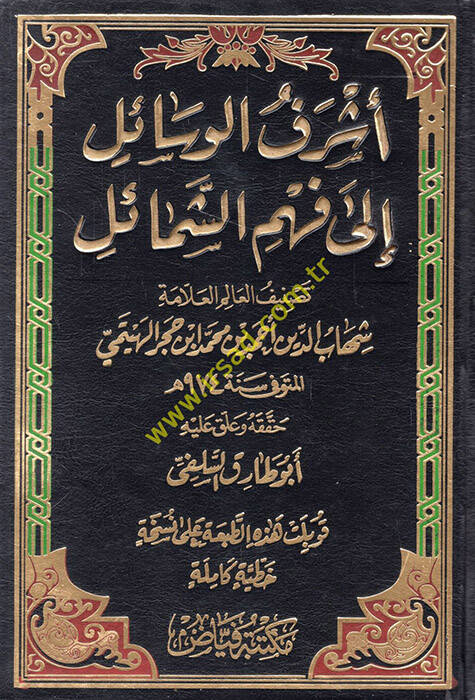 أشرف الوسائل
إلى فهم الشمائل
تصنيف العالم العلامة
شهاب الدين أحمد بن محمد ابن حجر الهيتمي
المتوفى سنة ٩٧٤هـ
حققه وعلق عليه
أبو طارق السلفي
قوبلت هذه الطبعة على نسخة
خطية كاملة
مكتبة فياض
www.irsad.com.tr